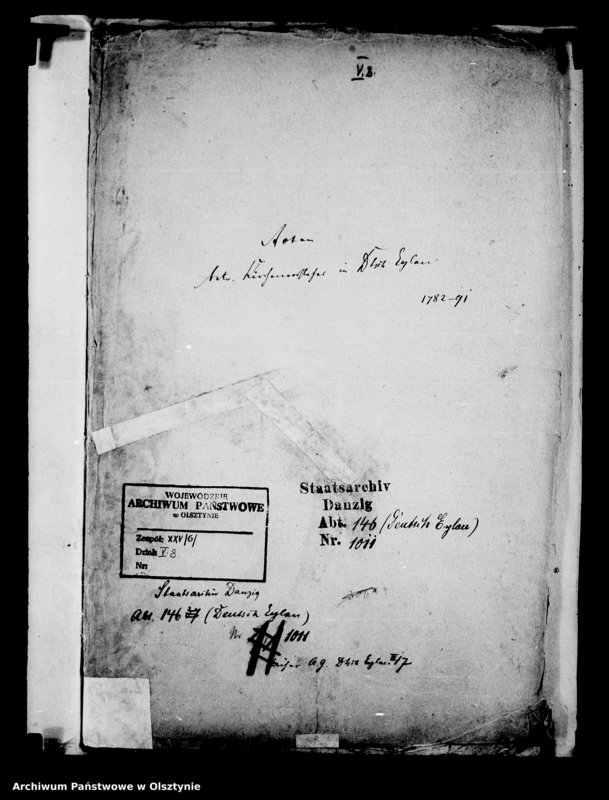 V.8.
Acten
betr. Kirchenvorsteher in Dtsch Eylau
1782-91
WOJEWÓDZKIE
ARCHIWUM PAŃSTWOWE
w OLSZTYNIE
Zespół: XXV/6/
Dział: V 8
Nr:
Staatsarchiv
Danzig
Abt. 146 (Deutsch Eylau)
Nr. 1011
Staatsarchiv Danzig
Abt. 146 (Deutsch Eylau)
Nr 1011
früher A.G. Dtsch Eylau 17
Archiwum Państwowe w Olsztynie